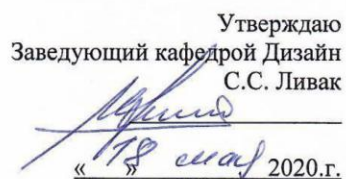 Утверждаю
Заведующий кафедрой Дизайн
С.С. Ливак
«18» мая 2020.г.